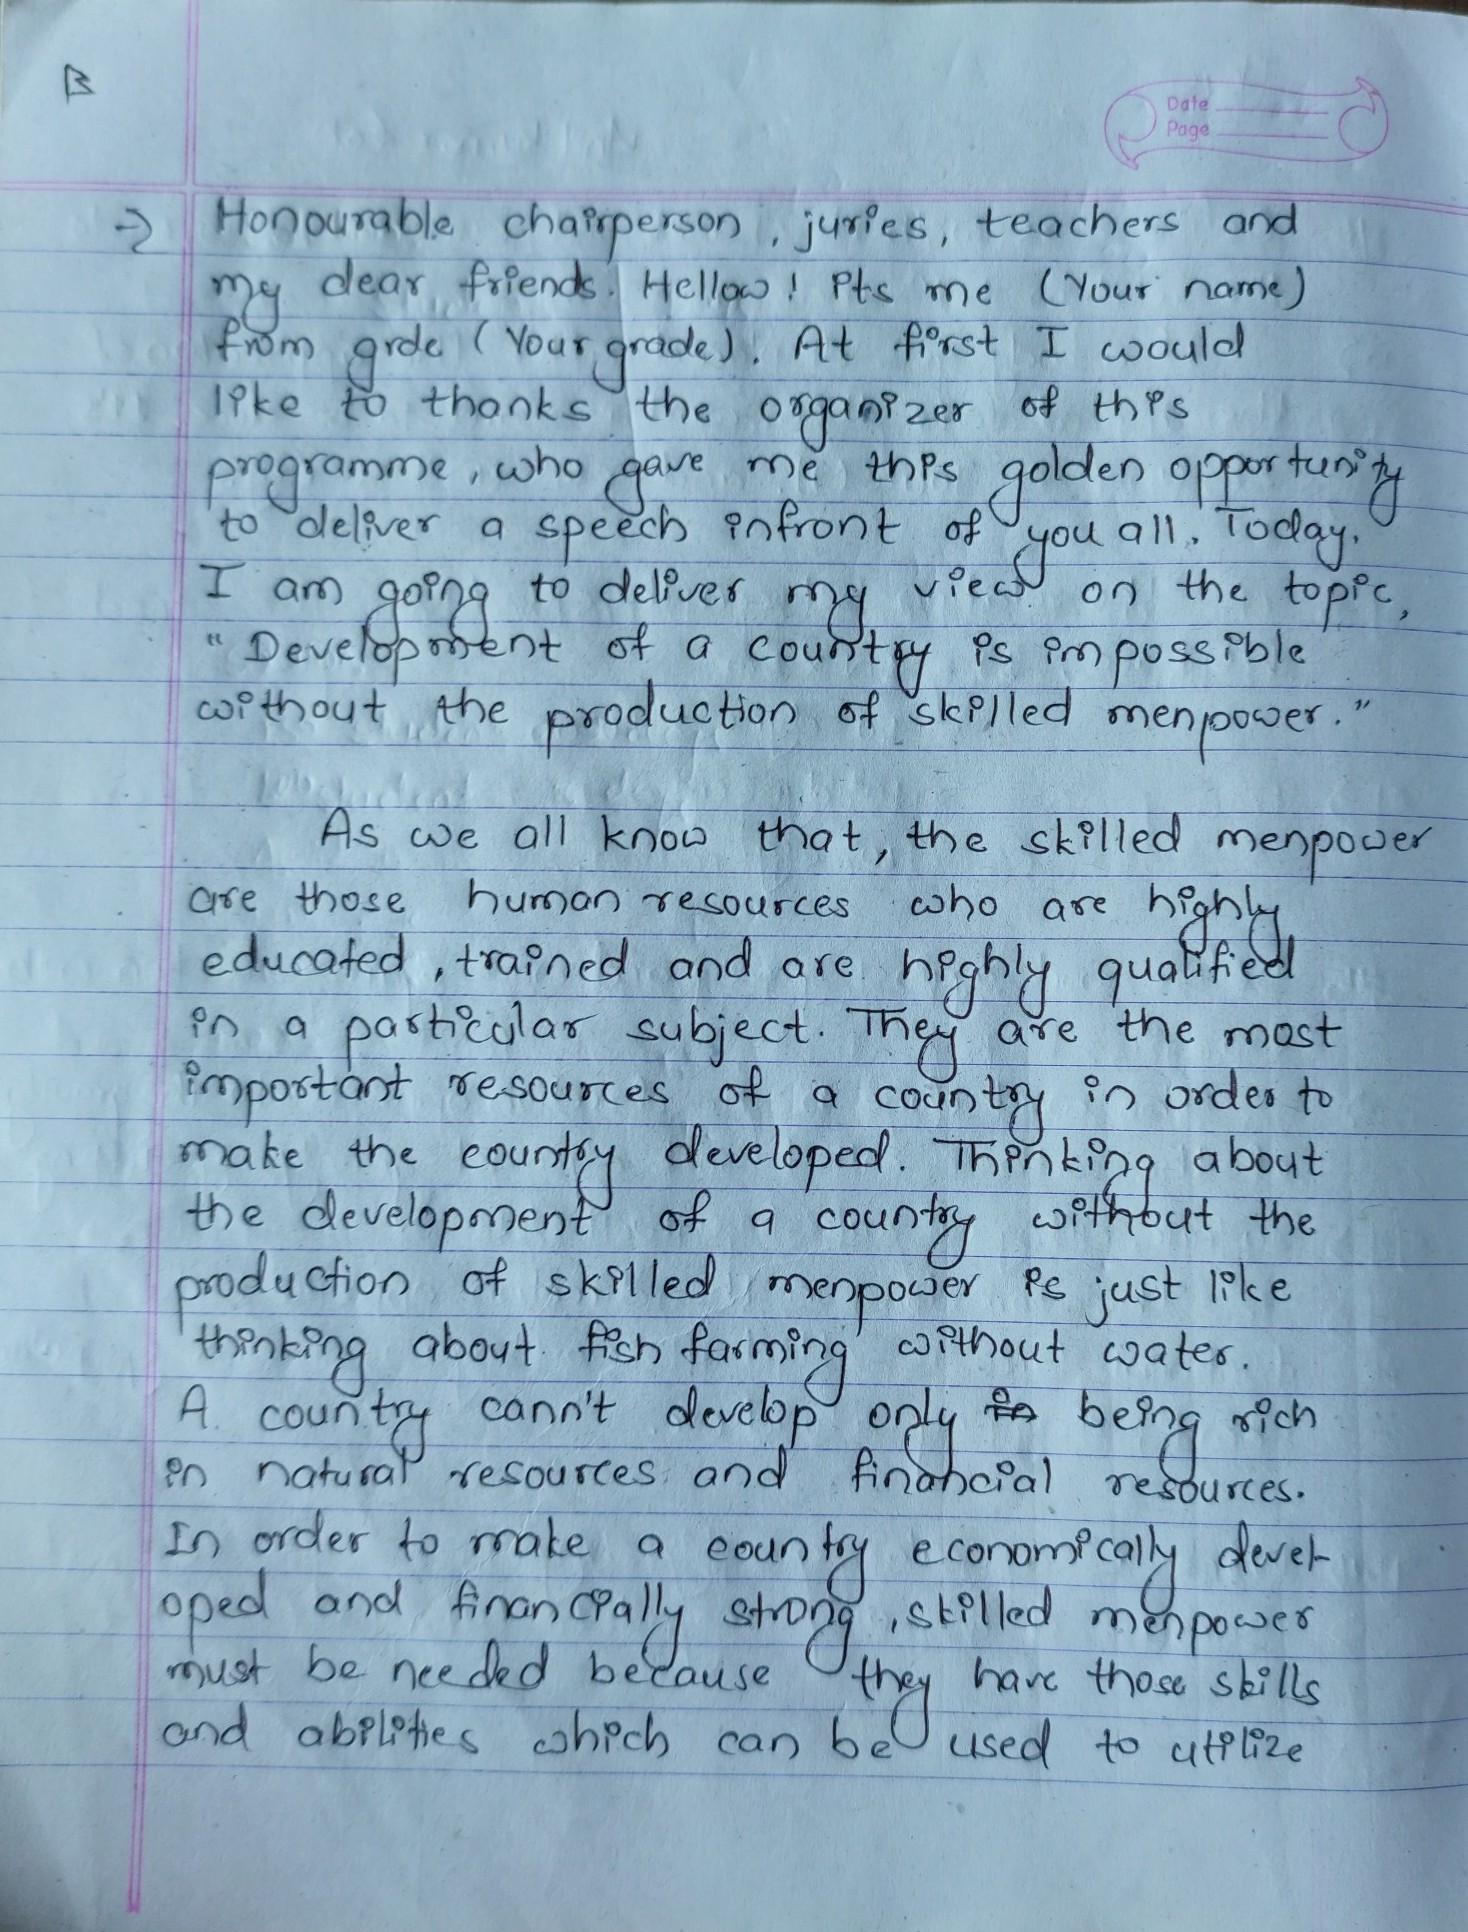 B
Date
Page
→ Honourable chairperson, juries, teachers and
my dear friends. Hellow! Its me (Your name)
from grde (Your grade). At first I would
like to thanks the organizer of this
programme, who gave me this golden opportunity
to deliver a speech infront of you all. Today,
I am going to deliver my view on the topic,
"Development of a country is impossible
without the production of skilled menpower."
As we all know that, the skilled menpower
are those human resources who are highly
educated, trained and are highly qualified
in a particular subject. They are the most
important resources of a country in order to
make the country developed. Thinking about
the development of a country without the
production of skilled menpower is just like
thinking about fish farming without water.
A country cann't develop only in being rich
in natural resources and financial resources.
In order to make a country economically devel-
oped and financially strong, skilled menpower
must be needed because they have those skills
and abilities which can be used to utilize